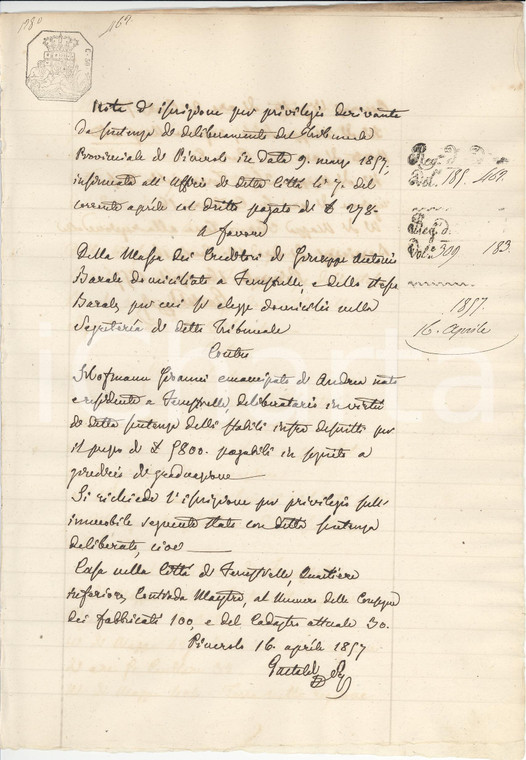 1780 469.
Nota d'iscrizione per privilegio derivante
da sentenza di deliberamento del Tribunale
Provinciale di Pinerolo in data 9. marzo 1857,
insinuata all'Uffizio di detta Città li 7. del
corrente aprile col dritto pagato di £ 278.
A favore
Della Massa dei Creditori di Giuseppe Antonio
Barale domiciliato a Fenestrelle, e dello stesso
Barale, per cui si elegge domicilio nella
Segreteria di detto Tribunale
Contro
Hofmann Gioanni emancipato di Andrea nato
e residente a Fenestrelle, deliberatario in virtù
di detta sentenza delli stabili infra descritti per
il prezzo di £ 5800. pagabili in seguito a
giudicio di graduazione
Si richiede l'iscrizione per privilegio sull'
immobile seguente stato con detta sentenza
deliberato, cioè
Casa nella Città di Fenestrelle, Quartiere
inferiore, Contrada Maestra, al numero delle Consegne
dei fabbricati 100, e del Cadastro attuale 30.
Pinerolo 16. aprile 1857
Reg. d'
Vol. 185. 469.
Reg. d.
Vol. 309 183.
1857
16. Aprile